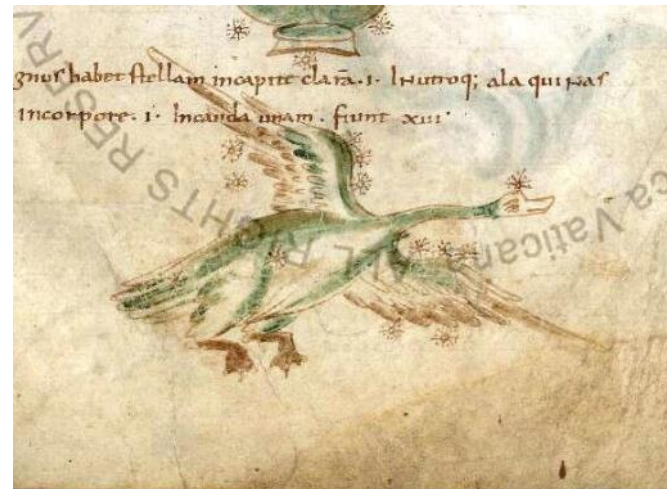 gnus habet stellam incapite clarā·1· Inutroq; ala quinas
Incorpore·1· Incauda unam· fiunt xiii·
RESERV
ALL RIGHTS RESERV
ca Vaticana